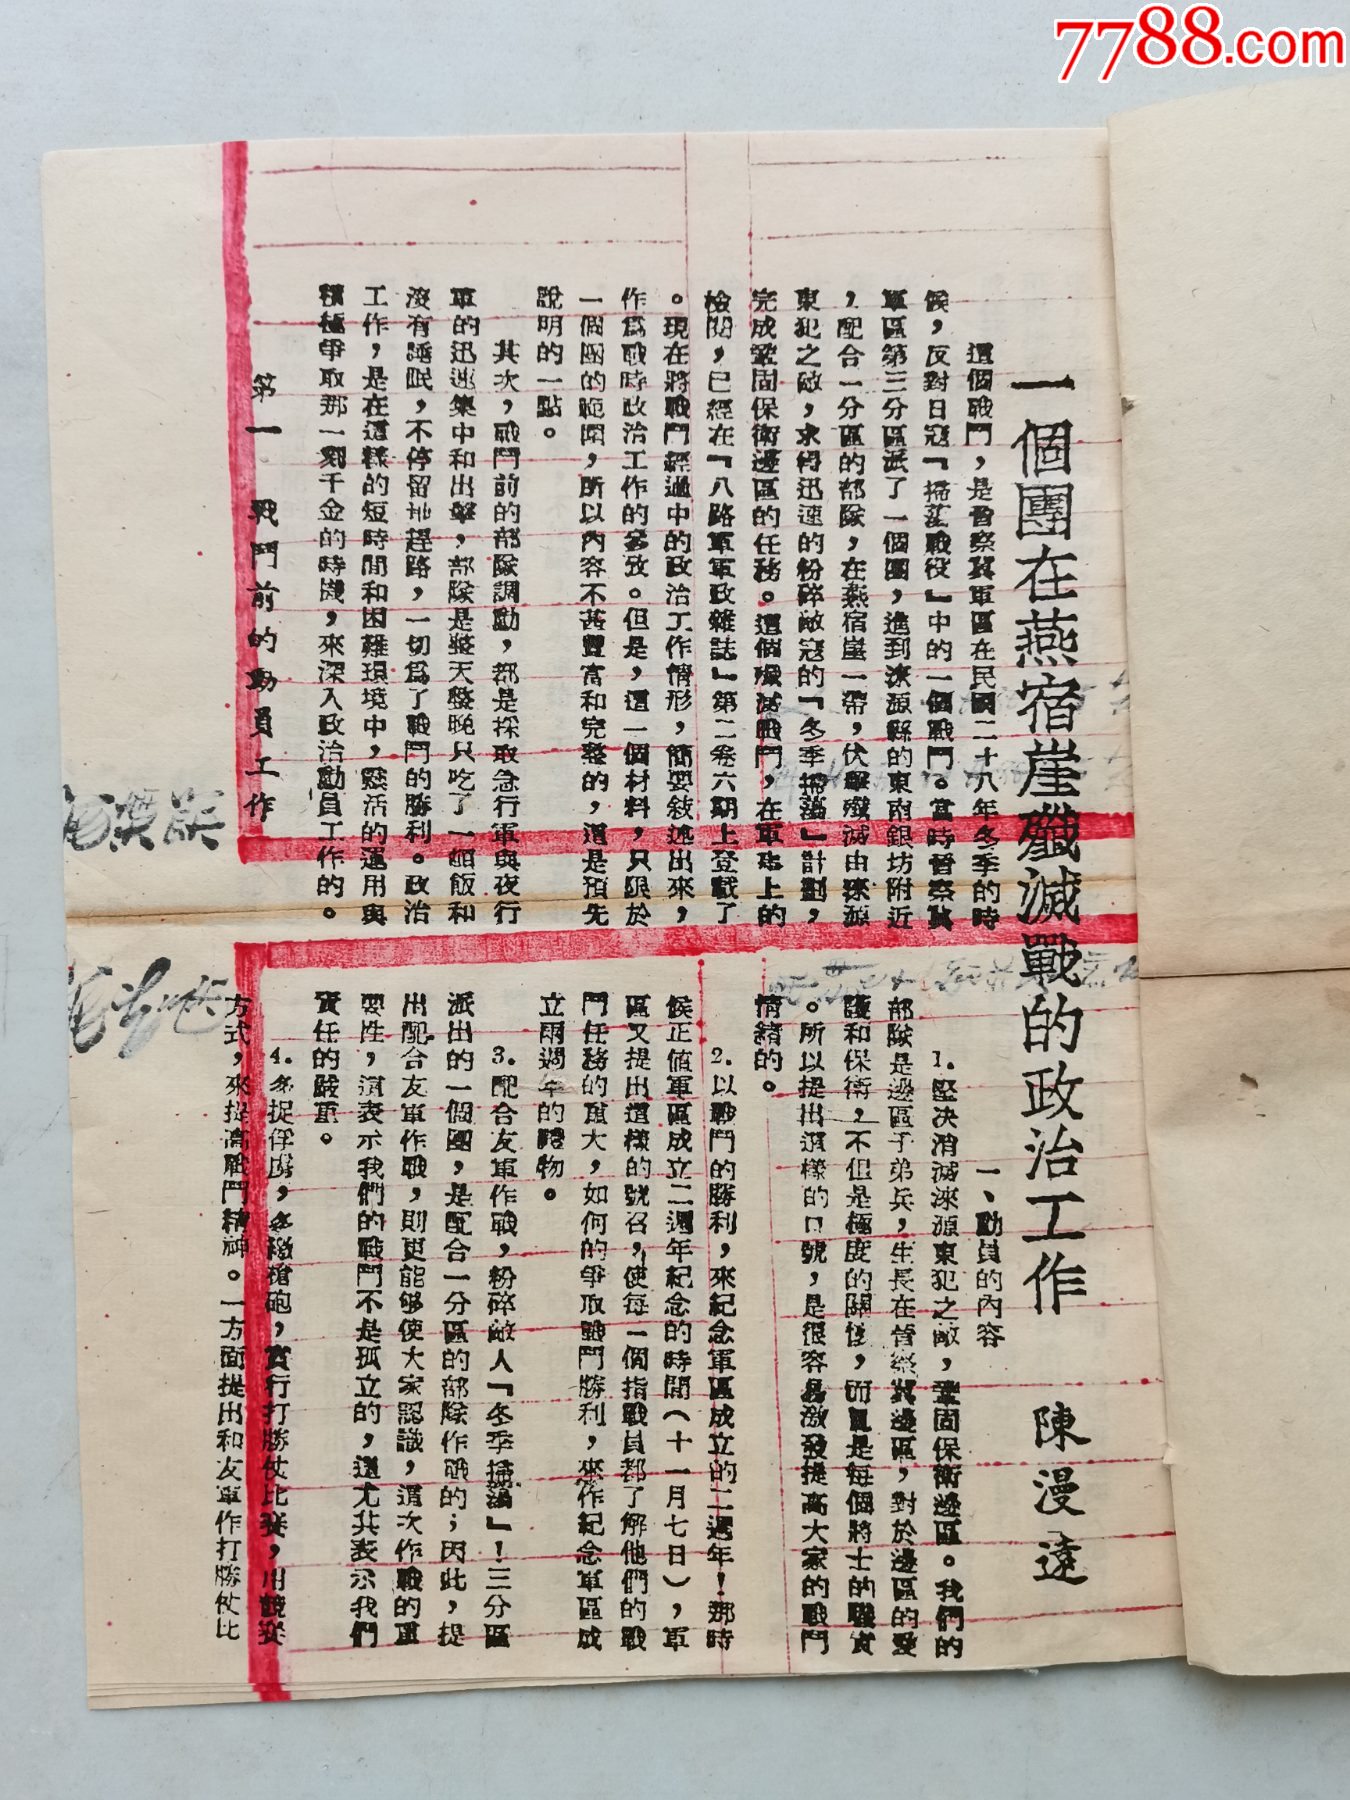 7788.com
一個團在燕宿崖殲滅戰的政治工作　陳漫遠
這個戰鬥，是晉察冀軍區在民國二十八年冬季的時
候，反對日寇『掃蕩戰役』中的一個戰鬥。當時晉察冀
軍區第三分區派了一個團，進到淶源縣的東南銀坊附近
，配合一分區的部隊，在燕宿崖一帶，伏擊殲滅由淶源
東犯之敵，求得迅速的粉碎敵寇的『冬季掃蕩』計劃，
完成鞏固保衛邊區的任務。這個殲滅戰鬥，在軍事上的
檢閱，已經在『八路軍軍政雜誌』第二卷六期上登載了
。現在將戰鬥經過中的政治工作情形，簡要敍述出來，
作爲戰時政治工作的參攷。但是，這一個材料，只限於
一個團的範圍，所以內容不甚豐富和完整的，這是預先
說明的一點。
其次，戰鬥前的部隊調動，都是採取急行軍與夜行
軍的迅速集中和出擊，部隊是整天整晚只吃了一頓飯和
沒有睡眠，不停留地趕路，一切爲了戰鬥的勝利。政治
工作，是在這樣的短時間和困難環境中，靈活的運用與
積極爭取那一刻千金的時機，來深入政治動員工作的。
第一　戰鬥前的動員工作
一、動員的內容
1.堅决消滅淶源東犯之敵，鞏固保衛邊區。我們的
部隊是邊區子弟兵，生長在晉察冀邊區，對於邊區的愛
護和保衛，不但是極度的關懷，而且是每個將士的職責
。所以提出這樣的口號，是很容易激發提高大家的戰鬥
情緒的。
2.以戰鬥的勝利，來紀念軍區成立的二週年！那時
候正值軍區成立二週年紀念的時間（十一月七日），軍
區又提出這樣的號召，使每一個指戰員都了解他們的戰
鬥任務的重大，如何的爭取戰鬥勝利，來作紀念軍區成
立兩週年的禮物。
3.配合友軍作戰，粉碎敵人『冬季掃蕩』！三分區
派出的一個團，是配合一分區的部隊作戰的；因此，提
出配合友軍作戰，則更能够使大家認識，這次作戰的重
要性，這表示我們的戰鬥不是孤立的，這尤其表示我們
責任的嚴重。
4.多捉俘虜，多繳槍砲，實行打勝仗比賽，用競賽
方式，來提高戰鬥精神。一方面提出和友軍作打勝仗比